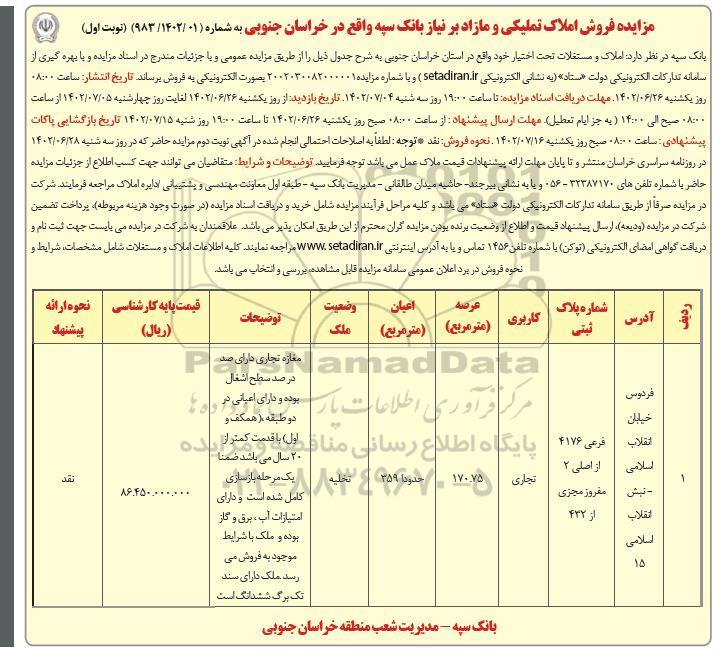 مزایده فروش املاک تملیکی و مازاد بر نیاز بانک سپه واقع در خراسان جنوبی به شماره (۰۱ /۱۴۰۲/ ۹۸۳) (نوبت اول)
بانک سپه در نظر دارد: املاک و مستغلات تحت اختیار خود واقع در استان خراسان جنوبی به شرح جدول ذیل را از طریق مزایده عمومی و با جزئیات مندرج در اسناد مزایده و با بهره گیری از
سامانه تدارکات الکترونیکی دولت «ستاد» (به نشانی الکترونیکی setadiran.ir ) و با شماره مزایده ۲۰۰۲۰۳۰۰۸۲۰۰۰۰۰۱ بصورت الکترونیکی به فروش برساند. تاریخ انتشار: ساعت ۰۸:۰۰
روز یکشنبه ۱۴۰۲/۰۶/۲۶. مهلت دریافت اسناد مزایده: تا ساعت ۱۹:۰۰ روز سه شنبه ۱۴۰۲/۰۷/۰۴. تاریخ بازدید: از روز یکشنبه ۱۴۰۲/۰۶/۲۶ لغایت روز چهارشنبه ۱۴۰۲/۰۷/۰۵ از ساعت
۰۸:۰۰ صبح الی ۱۴:۰۰ ( به جز ایام تعطیل). مهلت ارسال پیشنهاد : از ساعت ۰۸:۰۰ صبح روز یکشنبه ۱۴۰۲/۰۶/۲۶ تا ساعت ۱۹:۰۰ روز شنبه ۱۴۰۲/۰۷/۱۵ تاریخ بازگشایی پاکات
پیشنهادی : ساعت ۰۸:۰۰ صبح روز یکشنبه ۱۴۰۲/۰۷/۱۶ . نحوه فروش: نقد *توجه : لطفاً به اصلاحات احتمالی انجام شده در آگهی نوبت دوم مزایده حاضر که در روز سه شنبه ۱۴۰۲/۰۶/۲۸
در روزنامه سراسری خراسان منتشر و تا پایان مهلت ارائه پیشنهادات قیمت ملاک عمل می باشد توجه فرمایید. توضیحات و شرایط: متقاضیان می توانند جهت کسب اطلاع از جزئیات مزایده
حاضر با شماره تلفن های ۳۲۳۸۷۱۷۰ - ۰۵۶ و یا به نشانی بیرجند- حاشیه میدان طالقانی - مدیریت بانک سپه - طبقه اول معاونت مهندسی و پشتیبانی /دایره املاک مراجعه فرمایند. شرکت
در مزایده صرفاً از طریق سامانه تدارکات الکترونیکی دولت «ستاد» می باشد و کلیه مراحل فرآیند مزایده شامل خرید و دریافت اسناد مزایده (در صورت وجود هزینه مربوطه)، پرداخت تضمین
شرکت در مزایده (ودیعه)، ارسال پیشنهاد قیمت و اطلاع از وضعیت برنده بودن مزایده گران محترم از این طریق امکان پذیر می باشد. علاقمندان به شرکت در مزایده می بایست جهت ثبت نام و
دریافت گواهی امضای الکترونیکی (توکن) با شماره تلفن ۱۴۵۶ تماس و یا به آدرس اینترنتی www. setadiran.ir مراجعه نمایند. کلیه اطلاعات املاک و مستغلات شامل مشخصات، شرایط و
نحوه فروش در برد اعلان عمومی سامانه مزایده قابل مشاهده، بررسی و انتخاب می باشد.
ردیف آدرس شماره پلاک ثبتی کاربری عرصه (مترمربع) اعیان (مترمربع) وضعیت ملک توضیحات قیمت پایه کارشناسی (ریال) نحوه ارائه پیشنهاد
۱
فردوس
خیابان
انقلاب
اسلامی
- نبش
انقلاب
اسلامی
۱۵
فرعی ۴۱۷۶
از اصلی ۲
مفروز مجزی
از ۴۳۲
تجاری
۱۷۰.۷۵
حدودا ۳۵۹
تخلیه
مغازه تجاری دارای صد
در صد سطح اشغال
بوده و دارای اعیانی در
دو طبقه ،( همکف و
اول) با قدمت کمتر از
۲۰ سال می باشد ضمنا
یک مرحله بازسازی
کامل شده است و دارای
امتیازات آب ، برق و گاز
بوده و ملک با شرایط
موجود به فروش می
رسد .ملک دارای سند
تک برگ ششدانگ است
۸۶.۴۵۰.۰۰۰.۰۰۰
نقد
ParsNamadData
مرکز فرآوری اطلاعات پارس نماد داده ها
پایگاه اطلاع رسانی مناقصه و مزایده
۰۲۱-۸۸۳۴۹۶۷۰-۵
بانک سپه – مدیریت شعب منطقه خراسان جنوبی